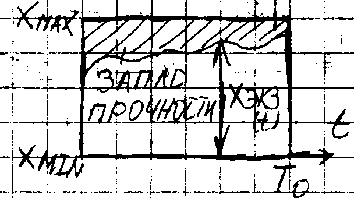 XMAX
ЗАПАС
ПРОЧНОСТИ
XЭКЗ
(t)
t
XMIN
T0